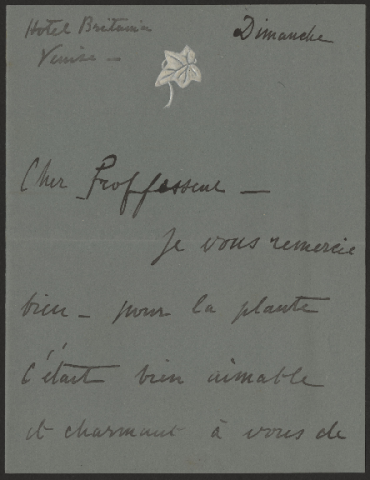 Hotel Britania
Venise —
Dimanche
Cher Proffesseur —
Je vous remercie
bien — pour la plante
C'était bien aimable
et charmant à vous de